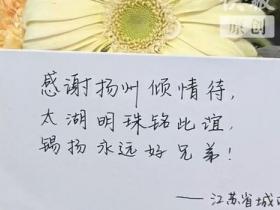 原创
感谢扬州倾情待，
太湖明珠铭此谊，
锡扬永远好兄弟！
——江苏省城